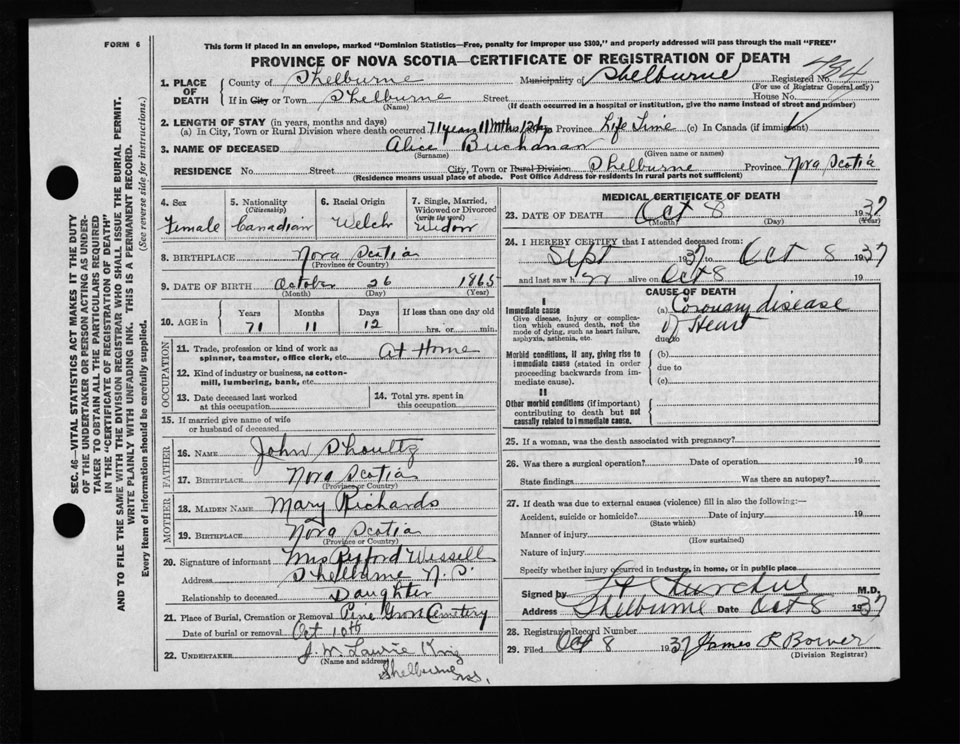 FORM 6
This form if placed in an envelope, marked "Dominion Statistics—Free, penalty for improper use $300," and properly addressed will pass through the mail "FREE"
PROVINCE OF NOVA SCOTIA—CERTIFICATE OF REGISTRATION OF DEATH
1. PLACE OF DEATH County of Shelburne Municipality of Shelburne Registered No. 434
(For use of Registrar General only)
If in City or Town Shelburne Street House No.
(Name) (If death occurred in a hospital or institution, give the name instead of street and number)
2. LENGTH OF STAY (in years, months and days)
(a) In City, Town or Rural Division where death occurred 71 years 11 mths 12 dys Province Life Time (c) In Canada (if immigrant)
3. NAME OF DECEASED Alice Buchanan
(Surname) (Given name or names)
RESIDENCE No. Street City, Town or Rural Division Shelburne Province Nova Scotia
(Residence means usual place of abode. Post Office Address for residents in rural parts not sufficient)
4. Sex Female
5. Nationality (Citizenship) Canadian
6. Racial Origin Welch
7. Single, Married, Widowed or Divorced (write the word) Widow
8. BIRTHPLACE Nova Scotia
(Province or Country)
9. DATE OF BIRTH October 26 1865
(Month) (Day) (Year)
10. AGE in Years Months Days If less than one day old
71 11 12 hrs. or min.
OCCUPATION
11. Trade, profession or kind of work as spinner, teamster, office clerk, etc. At Home
12. Kind of industry or business, as cotton-mill, lumbering, bank, etc.
13. Date deceased last worked at this occupation
14. Total yrs. spent in this occupation
15. If married give name of wife or husband of deceased
FATHER
16. NAME John Shoultz
17. BIRTHPLACE Nova Scotia
(Province or Country)
MOTHER
18. MAIDEN NAME Mary Richards
19. BIRTHPLACE Nova Scotia
(Province or Country)
20. Signature of informant Mrs Wessell
Address Shelburne N.S.
Relationship to deceased Daughter
21. Place of Burial, Cremation or Removal Pine Grove Cemetery
Date of burial or removal Oct 10th
22. UNDERTAKER J.W. Laurie King
(Name and address) Shelburne N.S.
MEDICAL CERTIFICATE OF DEATH
23. DATE OF DEATH Oct 8 1937
(Month) (Day) (Year)
24. I HEREBY CERTIFY that I attended deceased from:
Sept 1937 to Oct 8 1937
and last saw h er alive on Oct 8 19
CAUSE OF DEATH
I
Immediate cause
Give disease, injury or complication which caused death, not the mode of dying, such as heart failure, asphyxia, asthenia, etc.
(a) Coronary disease
of Heart
due to
Morbid conditions, if any, giving rise to immediate cause (stated in order proceeding backwards from immediate cause).
(b)
due to
(c)
II
Other morbid conditions (if important) contributing to death but not causally related to immediate cause.
25. If a woman, was the death associated with pregnancy?
26. Was there a surgical operation? Date of operation 19
State findings Was there an autopsy?
27. If death was due to external causes (violence) fill in also the following:—
Accident, suicide or homicide? Date of injury 19
(State which)
Manner of injury
(How sustained)
Nature of injury
Specify whether injury occurred in industry, in home, or in public place
Signed by Churchill M.D.
Address Shelburne Date Oct 8 1937
28. Registrar's Record Number
29. Filed Oct 8 1937 James R Bower
(Division Registrar)
SEC. 46—VITAL STATISTICS ACT MAKES IT THE DUTY
OF THE UNDERTAKER OR PERSON ACTING AS UNDER-
TAKER TO OBTAIN ALL THE PARTICULARS REQUIRED
IN THE "CERTIFICATE OF REGISTRATION OF DEATH"
AND TO FILE THE SAME WITH THE DIVISION REGISTRAR WHO SHALL ISSUE THE BURIAL PERMIT.
WRITE PLAINLY WITH UNFADING INK. THIS IS A PERMANENT RECORD.
Every item of information should be carefully supplied. (See reverse side for instructions.)